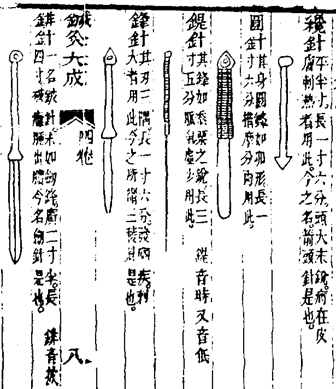 鑱針平半寸長一寸六分頭大末銳病在皮
膚刺熱者用此今之名箭頭針是也。
圓針其身圓鋒如卵形長一
寸六分揩摩分肉用此
鍉針其鋒如黍粟之銳長三
寸五分脈氣虛少用此。
鍉音時又音低
鋒針其刃三隅長一寸六分發痼疾刺
大者用此今之所謂三稜針是也。
灸大成
四卷
八
鉟針一名鈹針末如劍鋒廣二寸半長
四寸破癰腫出膿今名劍針是也。
鉟音披